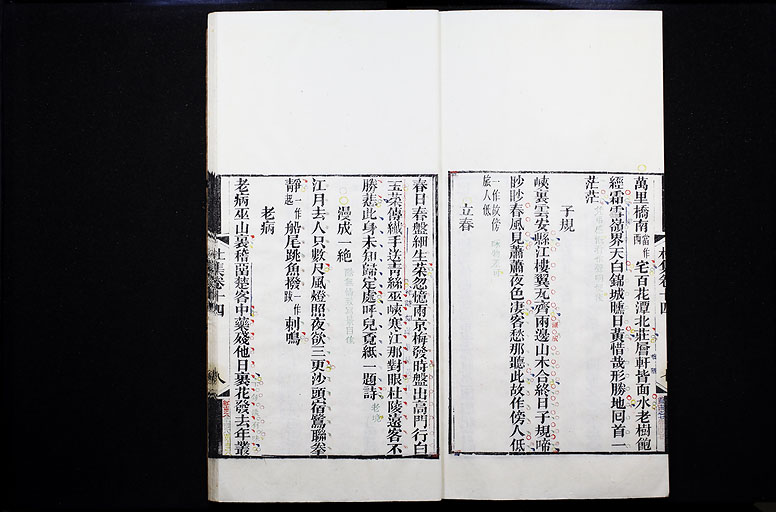 萬里橋南一作西宅百花潭北莊層軒皆面水老樹飽
經霜雪嶺界天白錦城曛日黃惜哉形勝地囘首一
茫茫
子規
峽裏雲安縣江樓翼瓦齊兩邊山木合終日子規啼
眇眇春風見蕭蕭夜色凄客愁那聽此故作傍人低
一作故傍
旅人低
立春
春日春盤細生菜忽憶兩京梅發時盤出高門行白
玉菜傳纖手送青絲巫峽寒江那對眼杜陵遠客不
勝悲此身未知歸定處呼兒覓紙一題詩
漫成一絶
江月去人只數尺風燈照夜欲三更沙頭宿鷺聯拳
靜一作起船尾跳魚撥一作跋剌鳴
老病
老病巫山裏稽留楚客中藥殘他日裹花發去年叢
杜集卷十四
八